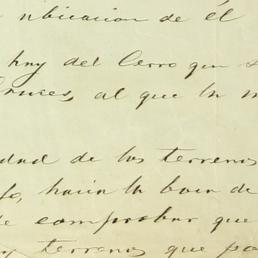 ubicacion de él
hay del Cerro que
Cruces, al que la
dad de los terrenos
hácia la boca de
comprobar que
y terrenos que